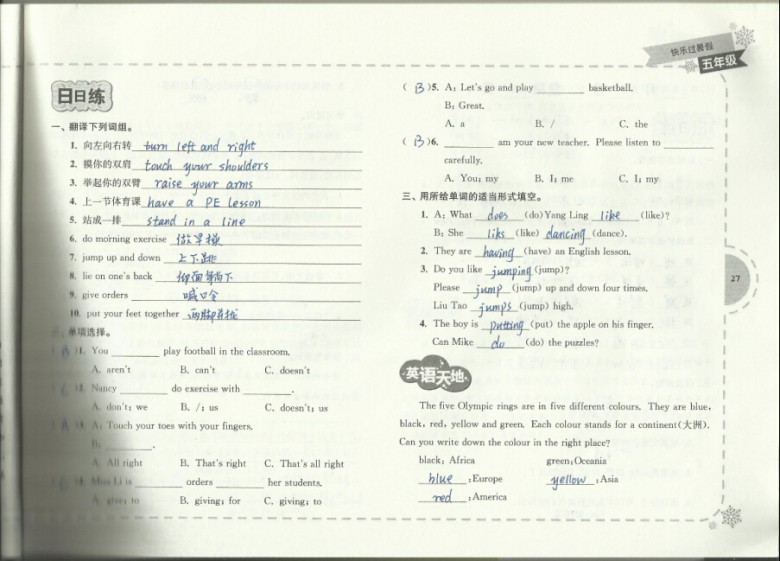 快乐过暑假
五年级
日日练
一、翻译下列词组。
1. 向左向右转 turn left and right
2. 摸你的双肩 touch your shoulders
3. 举起你的双臂 raise your arms
4. 上一节体育课 have a PE lesson
5. 站成一排 stand in a line
6. do morning exercise 做早操
7. jump up and down 上下跳
8. lie on one's back 仰面躺下
9. give orders 喊口令
10. put your feet together 两脚并拢
二、单项选择。
( B )1. You ________ play football in the classroom.
A. aren't B. can't C. doesn't
( C )2. Nancy ________ do exercise with ________.
A. don't; we B. /; us C. doesn't; us
( A )3. A: Touch your toes with your fingers.
B: ________.
A. All right B. That's right C. That's all right
( )4. Miss Li is ________ orders ________ her students.
A. give; to B. giving; for C. giving; to
( B )5. A: Let's go and play ________ basketball.
B: Great.
A. a B. / C. the
( B )6. ________ am your new teacher. Please listen to ________
carefully.
A. You; my B. I; me C. I; my
三、用所给单词的适当形式填空。
1. A: What does (do) Yang Ling like (like)?
B: She liks (like) dancing (dance).
2. They are having (have) an English lesson.
3. Do you like jumping (jump)?
Please jump (jump) up and down four times.
Liu Tao jumps (jump) high.
4. The boy is putting (put) the apple on his finger.
Can Mike do (do) the puzzles?
27
英语天地
The five Olympic rings are in five different colours. They are blue,
black, red, yellow and green. Each colour stands for a continent(大洲).
Can you write down the colour in the right place?
black: Africa green: Oceania
blue : Europe yellow : Asia
red : America